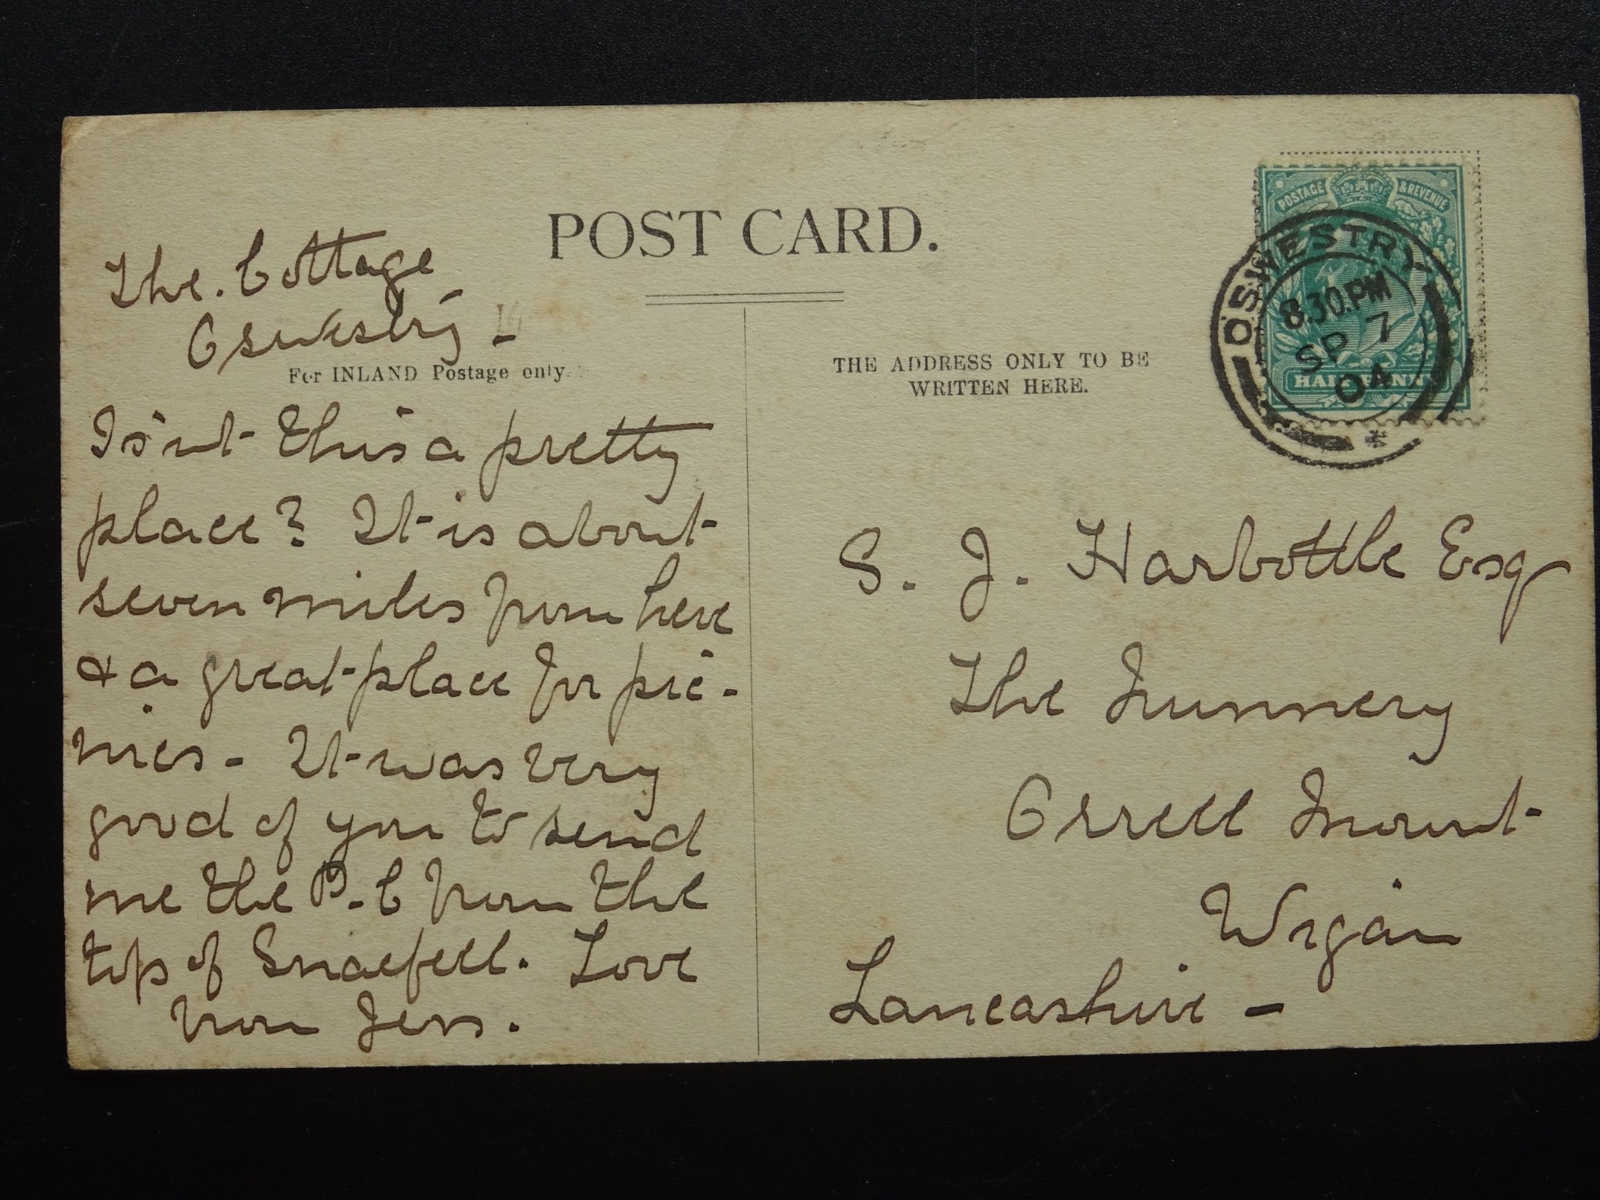 POST CARD.
The. Cottage
Oswestry -
For INLAND Postage only.
Is'nt this a pretty
place? It is about
seven miles from here
& a great place for pic-
nics - It was very
good of you to send
me the P.C from the
top of Snaefell. Love
from
THE ADDRESS ONLY TO BE
WRITTEN HERE.
POSTAGE & REVENUE
OSWESTRY
8.30.PM
SP 7
04
HALFPENNY
S. J. Harbottle Esq
The Nunnery
Orrell Mount
Wigan
Lancashire -